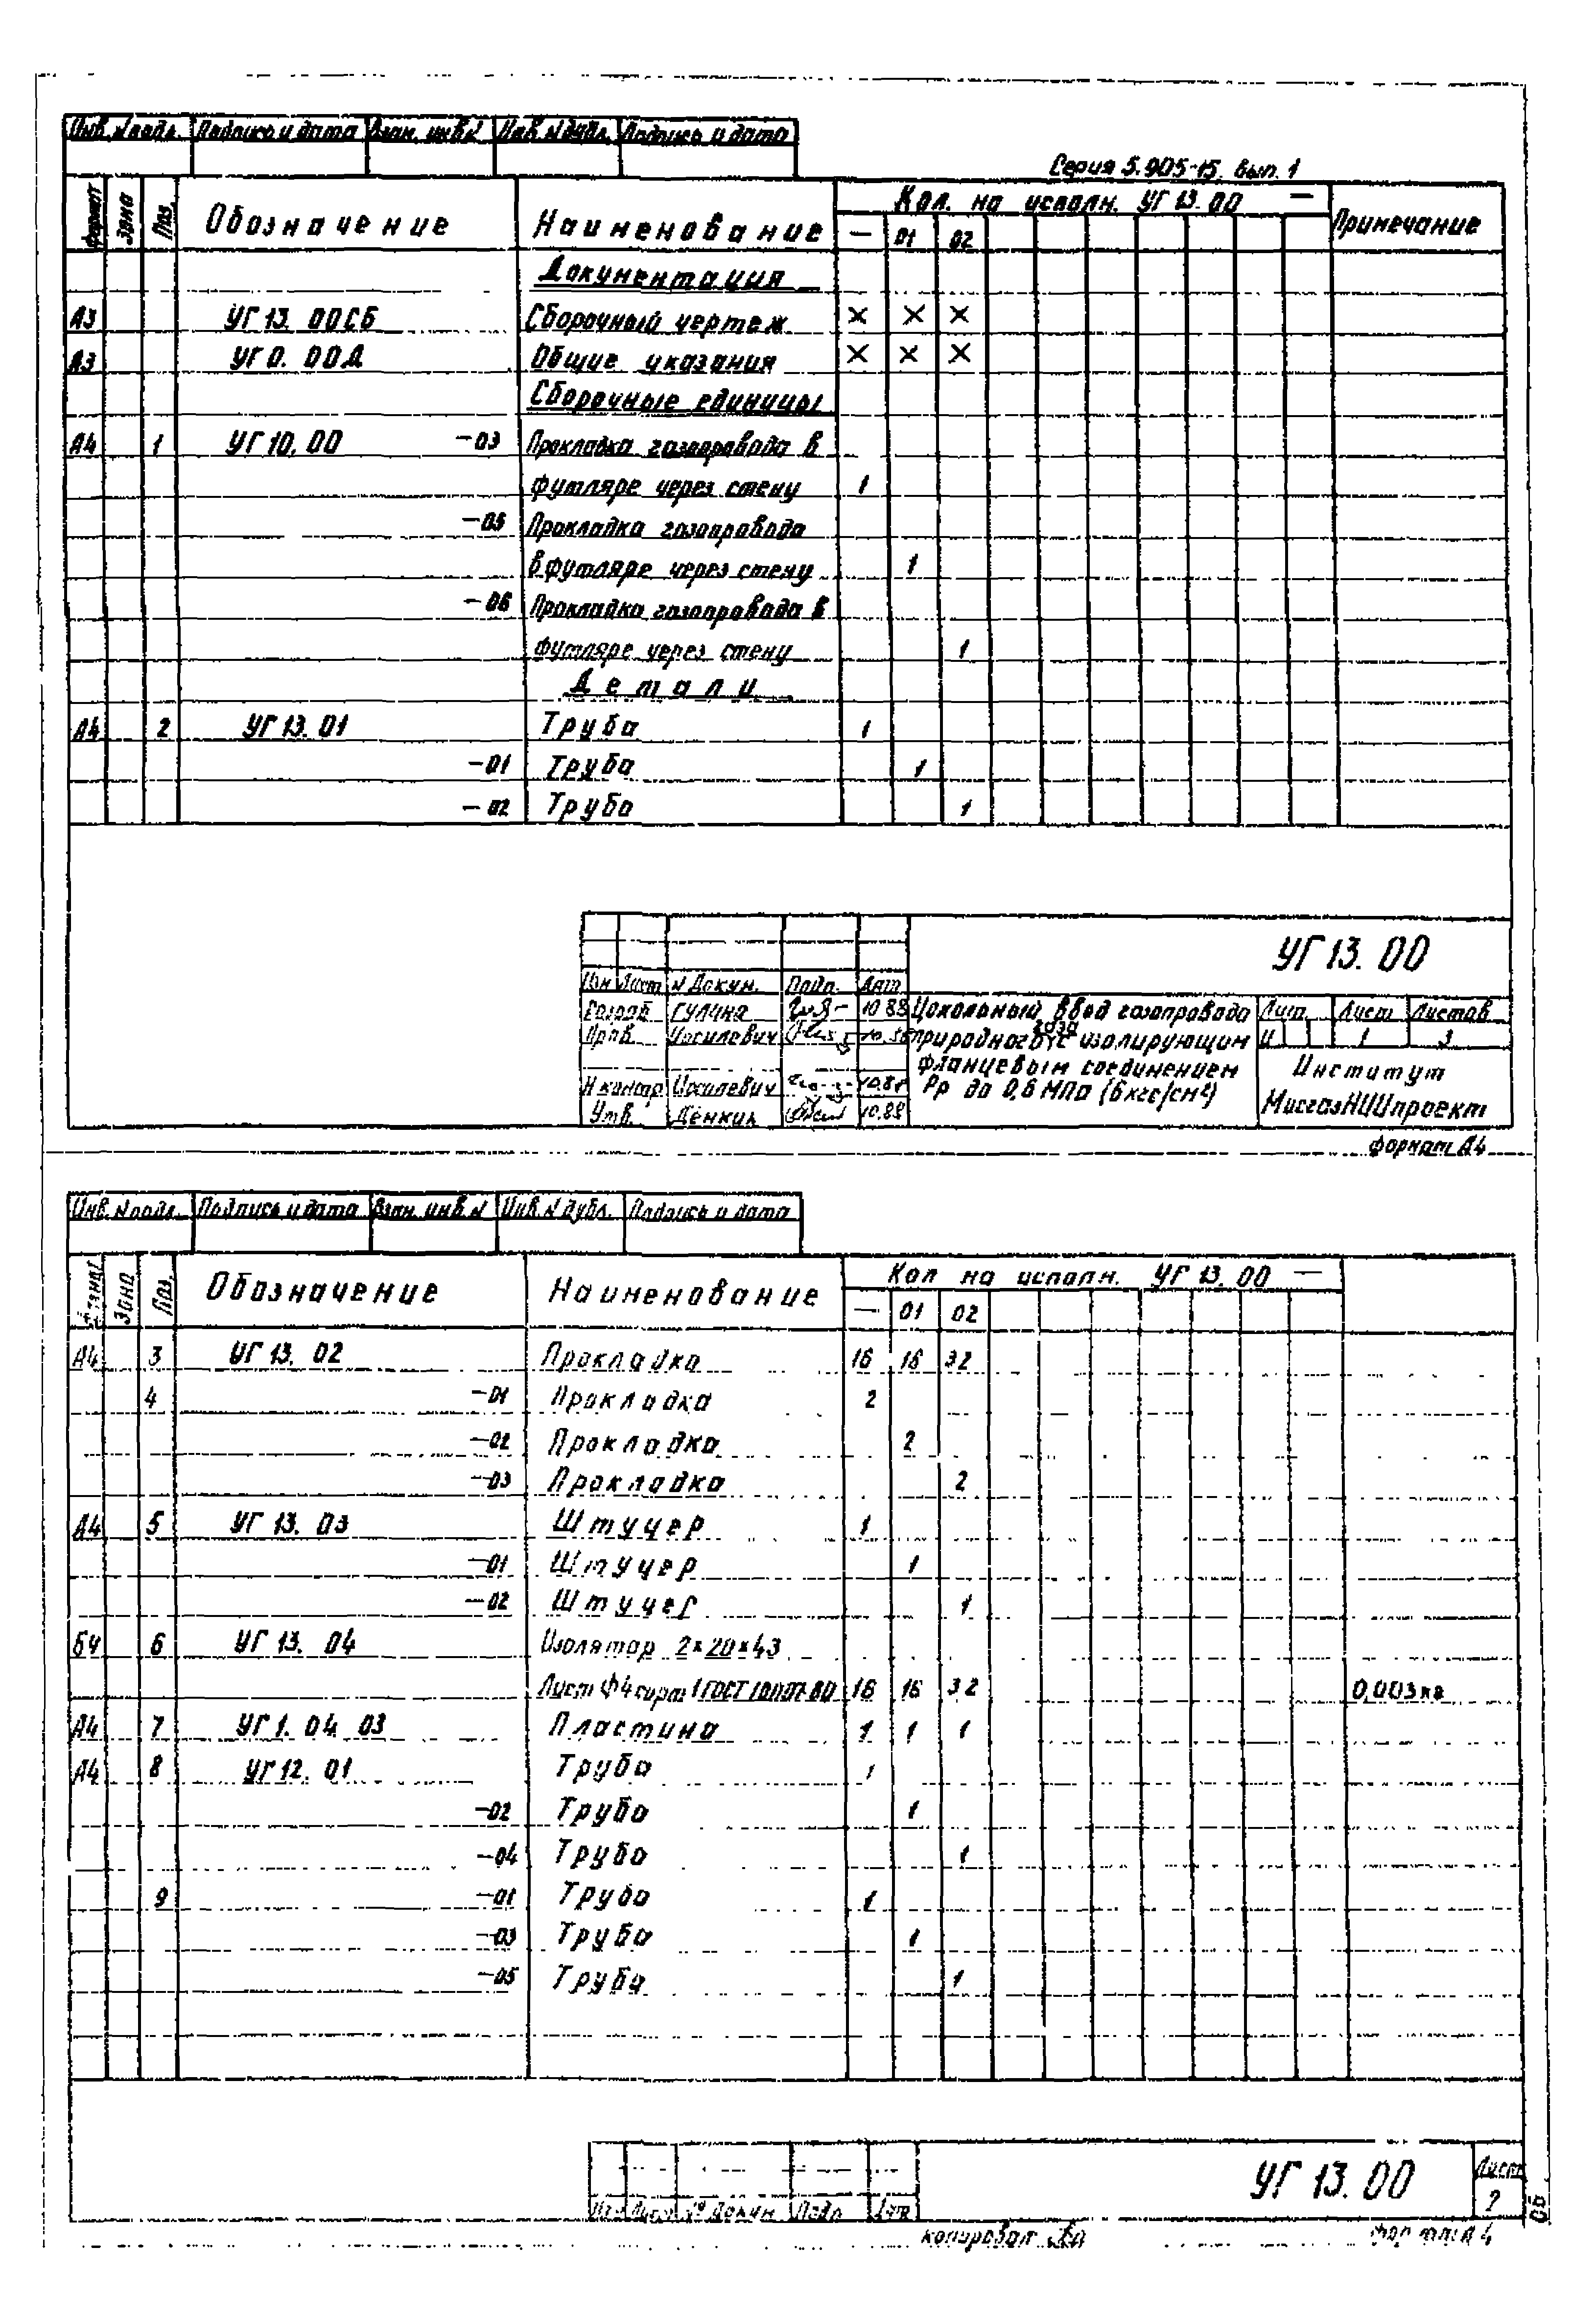 Инв. N подл. Подпись и дата Взам. инв N Инв N дубл. Подпись и дата
Серия 5.905-15. вып. 1
формат Зона Поз. Обозначение Наименование Кол. на исполн. УГ 13.00 — Примечание
— 01 02
Документация
А3 УГ 13. 00СБ Сборочный чертеж × × ×
А3 УГ 0. 00Д Общие указания × × ×
Сборочные единицы
А4 1 УГ 10. 00 —03 Прокладка газопровода в
футляре через стену 1
—05 Прокладка газопровода
в футляре через стену 1
—06 Прокладка газопровода в
футляре через стену 1
Детали
А4 2 УГ 13. 01 Труба 1
—01 Труба 1
—02 Труба 1
УГ 13. 00
Изм Лист N Докум. Подп. Дат
Разраб Гулина 10.88
Пров. Иосилевич 10.88
Н.контр Иосилевич 10.88
Утв. Денкин 10.88
Цокольный ввод газопровода
природного газа с изолирующим
фланцевым соединением
Рр до 0,6 МПа (6кгс/см²)
Лит. Лист Листов
И 1 3
Институт
МосгазНИИпроект
формат А4
Инв. N подл. Подпись и дата Взам. инв N Инв. N дубл. Подпись и дата
Формат Зона Поз. Обозначение Наименование Кол на исполн. УГ 13. 00 —
— 01 02
А4 3 УГ 13. 02 Прокладка 16 16 32
4 —01 Прокладка 2
—02 Прокладка 2
—03 Прокладка 2
А4 5 УГ 13. 03 Штуцер 1
—01 Штуцер 1
—02 Штуцер 1
БЧ 6 УГ 13. 04 Изолятор 2×20×43
Лист Ф4 сорт 1 ГОСТ 10007-80 16 16 32 0,003кг
А4 7 УГ 1. 04. 03 Пластина 1 1 1
А4 8 УГ 12. 01 Труба 1
—02 Труба 1
—04 Труба 1
9 —01 Труба 1
—03 Труба 1
—05 Труба 1
УГ 13. 00
Лист
2
Изм Лист № Докум Подп Дат
копировал
формат А4